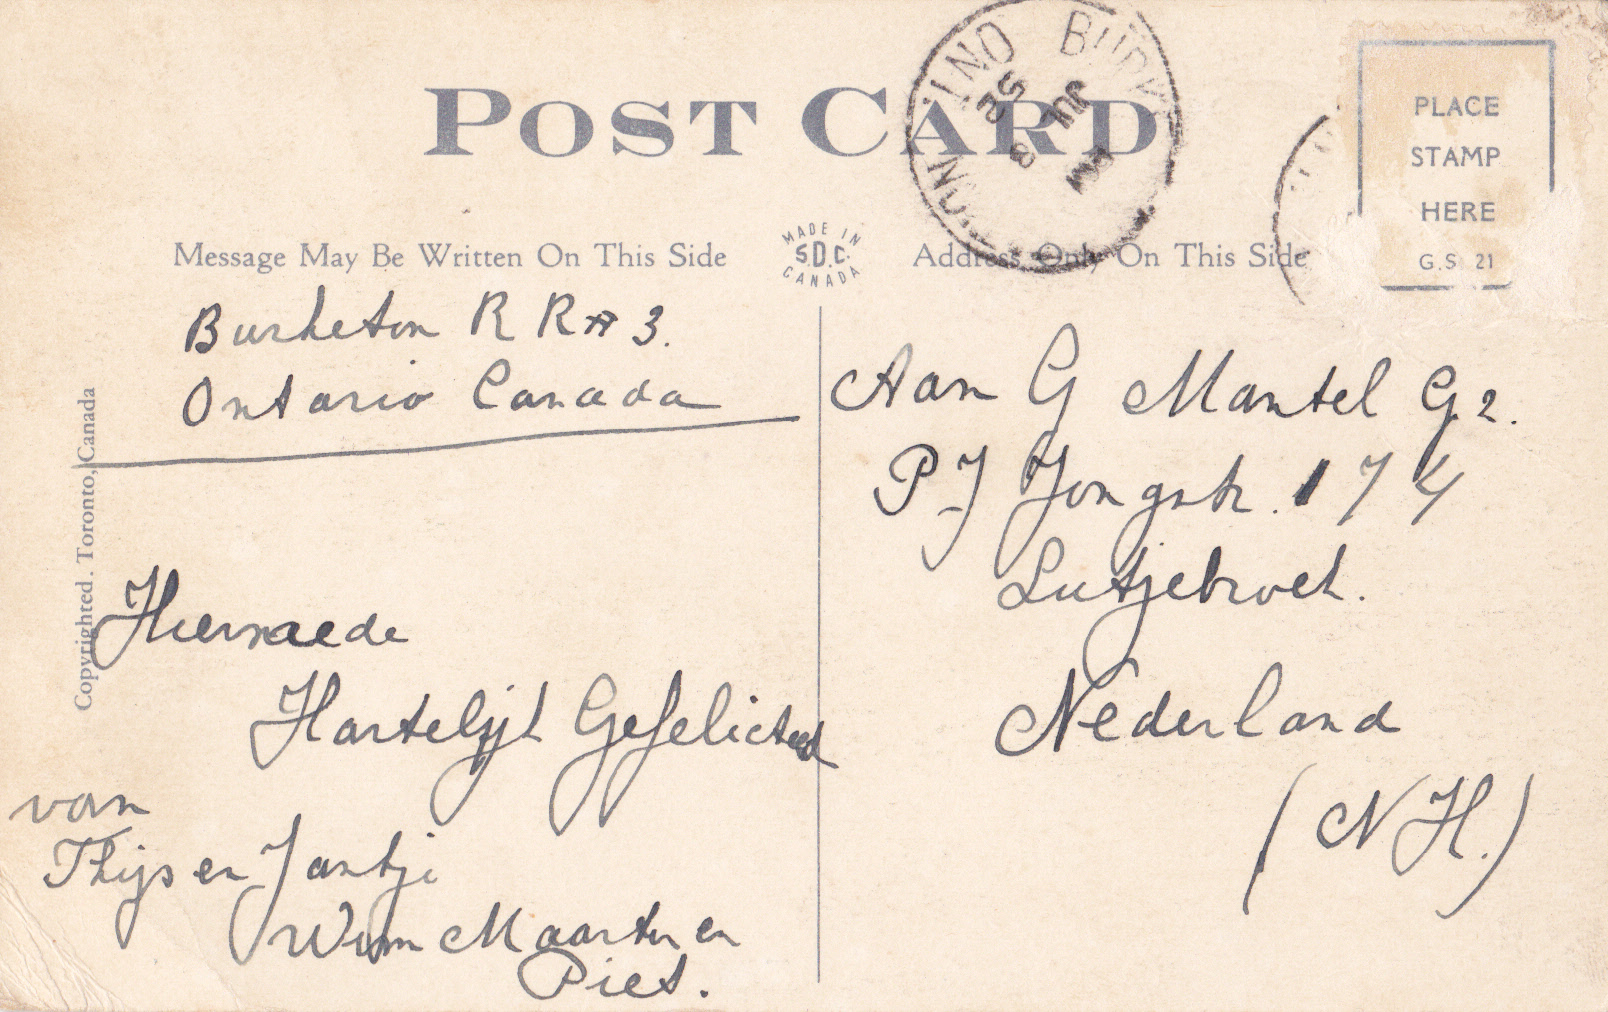 POST CARD
BURK ON ONT.
PM
JUL 8
52
PLACE
STAMP
HERE
G.S. 21
Message May Be Written On This Side
MADE IN
S.D.C.
CANADA
Address Only On This Side
Copyrighted. Toronto, Canada
Burketon R R # 3.
Ontario Canada
Hiernaede
Hartelijk Gefeliciteed
van
Thijs en Jantje
Wim Maarten en
Piet.
Aan G Mantel Gz.
P J Jongstr. 174
Lutjebroek.
Nederland
(N H.)